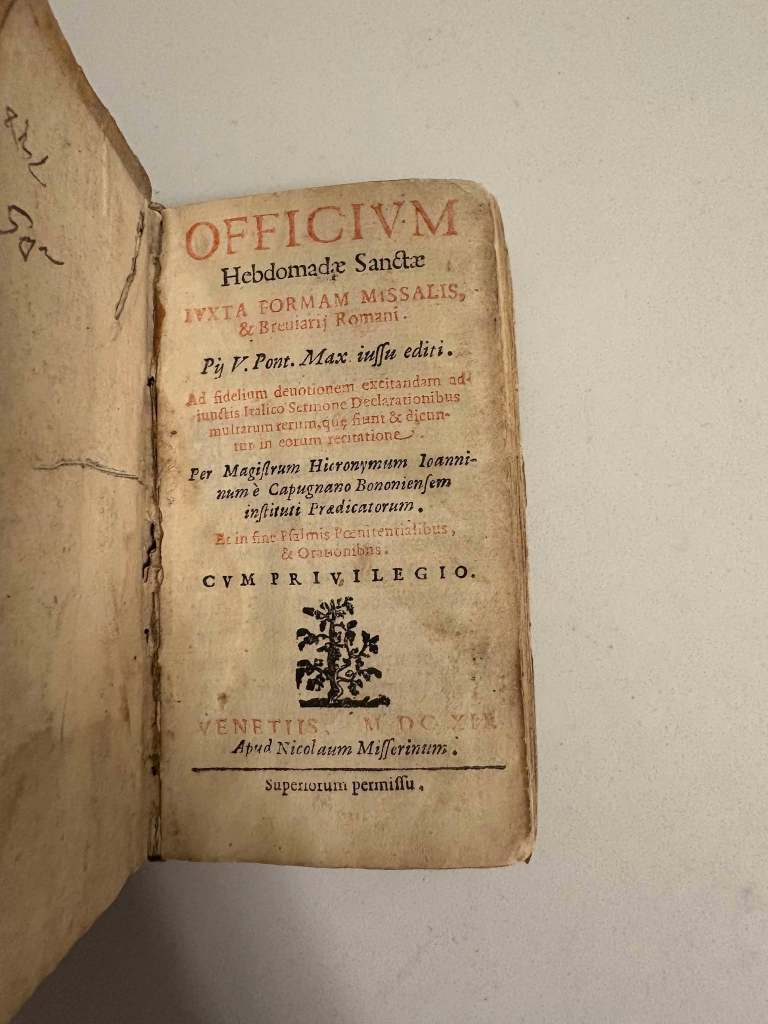 OFFICIVM
Hebdomadæ Sanctæ
IVXTA FORMAM MISSALIS,
& Breuiarij Romani.
Pij V. Pont. Max iussu editi.
Ad fidelium deuotionem excitandam ad-
iunctis Italico Sermone Declarationibus
multarum rerum, quę fiunt & dicun-
tur in eorum recitatione.
Per Magistrum Hieronymum Ioanni-
num è Capugnano Bononiensem
instituti Prædicatorum.
Et in fine Psalmis Pœnitentialibus,
& Orationibus.
CVM PRIVILEGIO.
VENETIIS, M DC
Apud Nicolaum Misserinum.
Superiorum permissu.